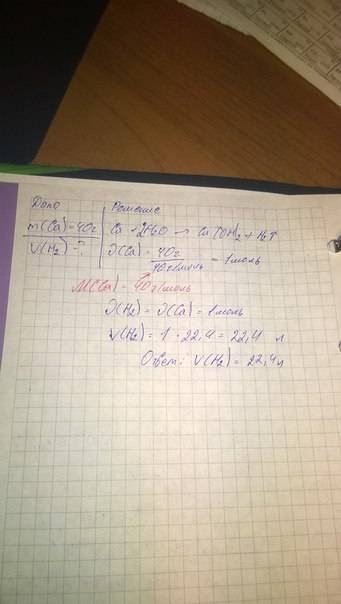 Дано
Решение
m(Ca)=40г
Ca + 2H2O → Ca(OH)2 + H2↑
V(H2) - ?
ν(Ca) = 40г / 40г/моль = 1моль
M(Ca) = 40 г/моль
ν(H2) = ν(Ca) = 1моль
V(H2) = 1 · 22,4 = 22,4 л
Ответ: V(H2) = 22,4л